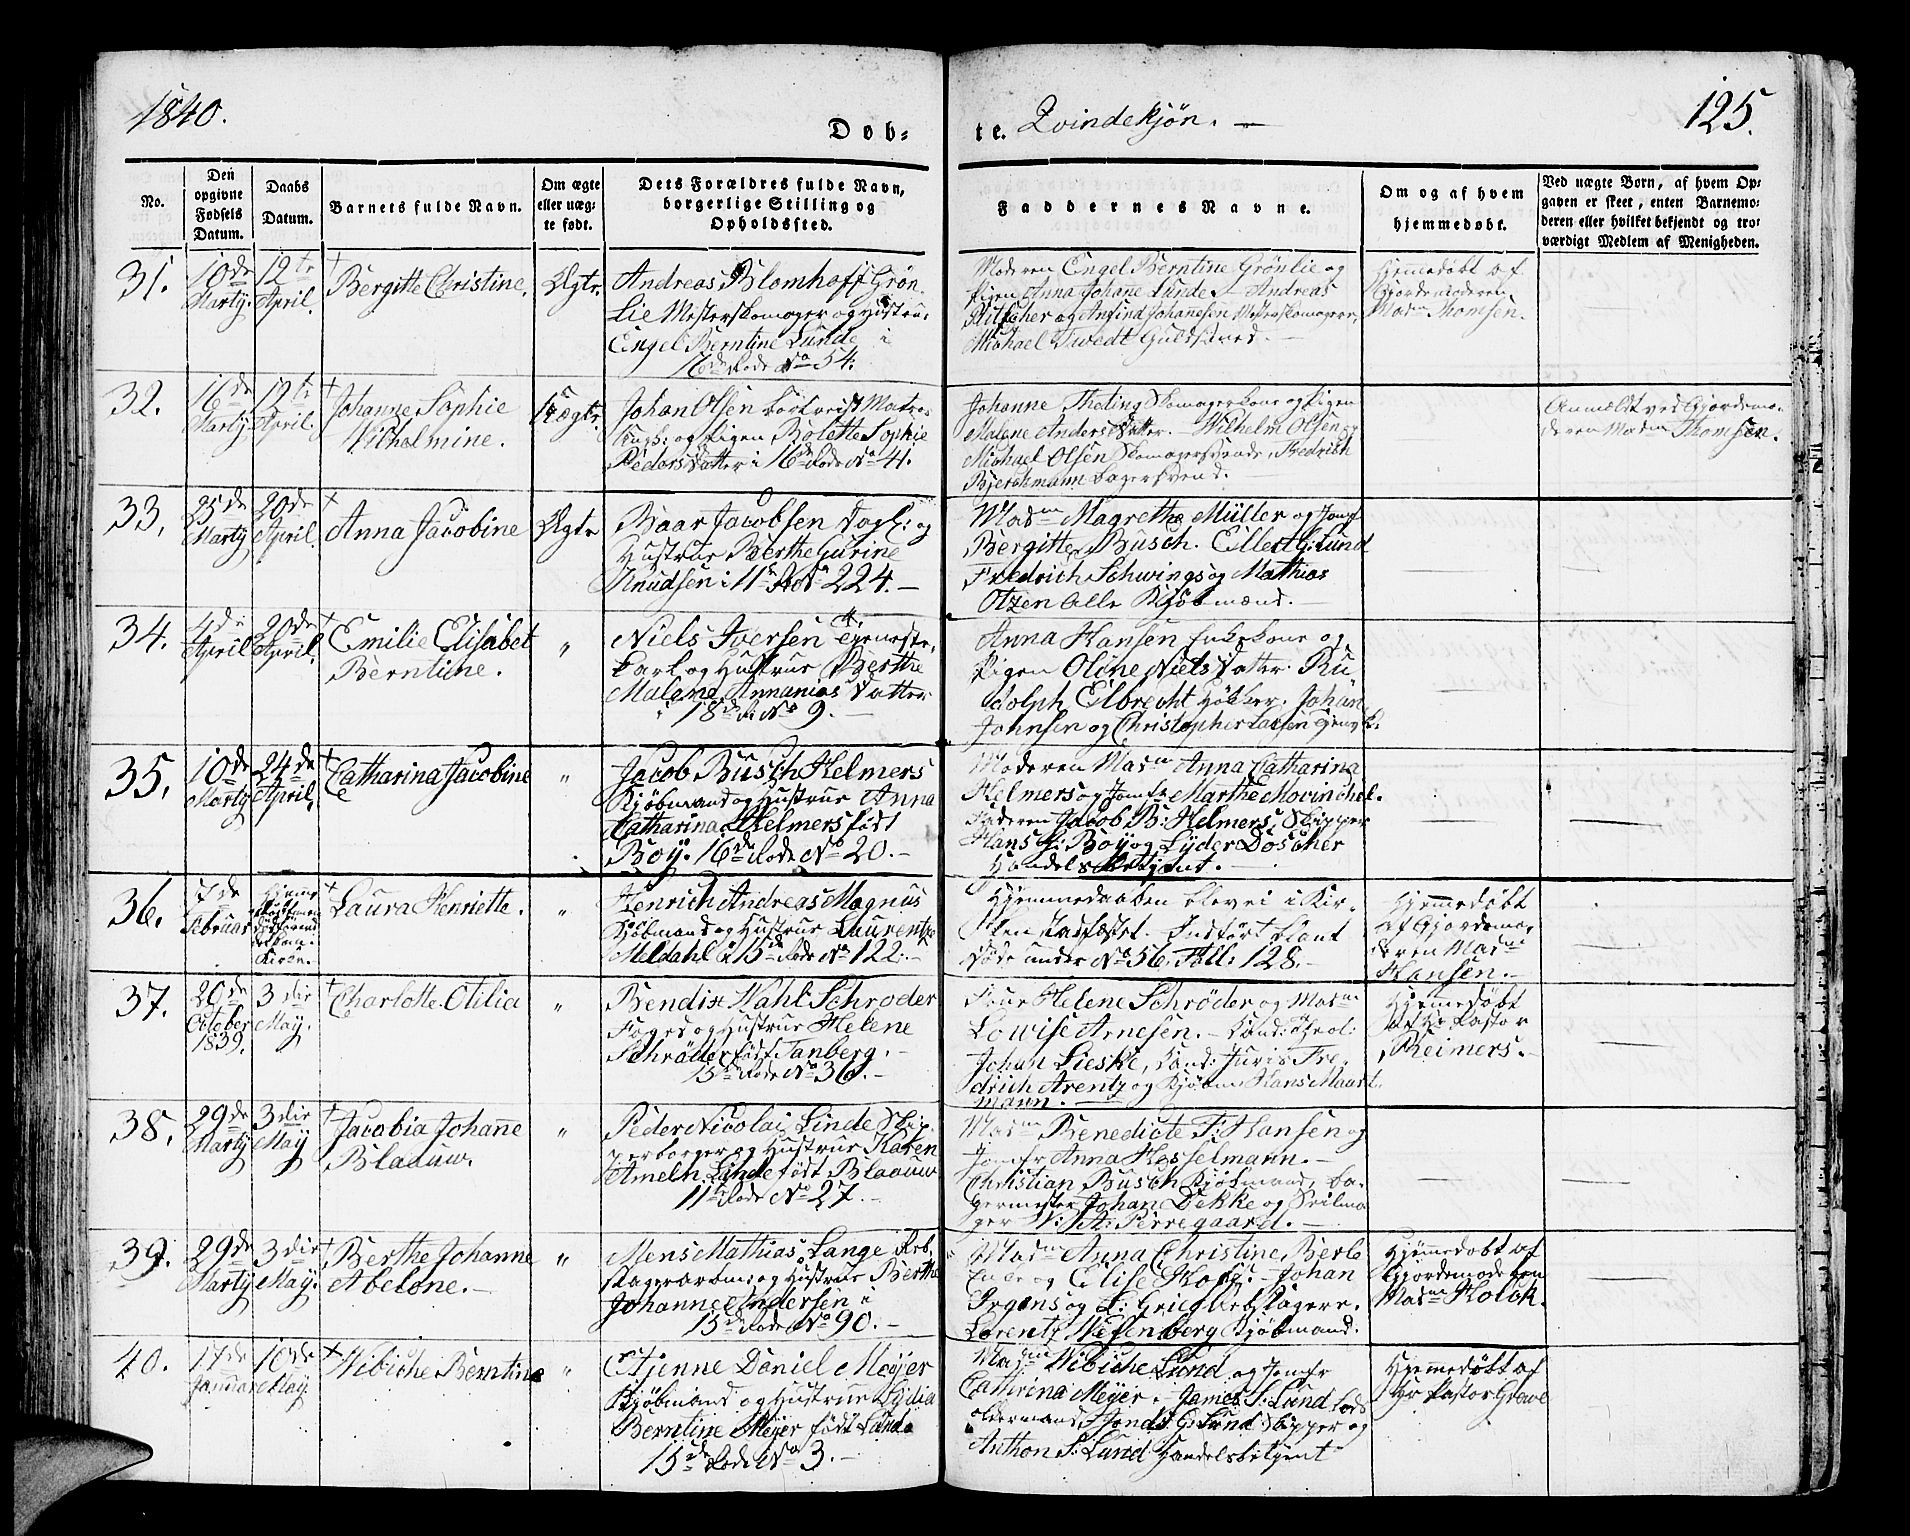 1840.
Døb-
te. Qvindekjøn. —
125.
No.
Den opgivne Fødsels Datum.
Daabs Datum.
Barnets fulde Navn.
Om ægte eller uægte født.
Dets Forældres fulde Navn, borgerlige Stilling og Opholdssted.
Faddernes Navne.
Om og af hvem hjemmedøbt.
Ved uægte Børn, af hvem Opgaven er skeet, enten Barnemoderen eller hvilket bekjendt og troværdigt Medlem af Menigheden.
31.
10de Martij
12te April.
Bergitte Christine.
Ægte.
Andreas Blomhoff Grøn
lie Mesterskomager og Hustru
Engel Berntine Lunde i
16de Rode No 54.
Moderen Engel Berntine Grønlie og
Pigen Anna Johane Lunde. Andreas
og Anfind Johanesen Mesterskomagere,
Michael Tvedt Guldsvend. —
Hjemmedøbt af
Gjordemoderen
Madm Thomsen.
32.
16de Martij
12te April.
Johanne Sophie
Wilhelmine.
Uægte.
Johan Olsen bortreist Matros
Ungk: og Pigen Bolette Sophie
Pedersdatter i 16de Rode No 41.
Johanne Theting Skomagerkone og Pigen
Malene Andersdatter. Wilhelm Olsen og
Michael Olsen Skomagersvende, Fredrich
Bjerckmann bagersvend.
Anmeldt ved Gjordemo-
deren Madm Thomsen.
33.
25de Martij
20de April.
Anna Jacobine
Ægte
Baar Jacobsen Dagl: og
Hustrue Berthe Gurine
Knudsen i 11te Rode No 224. —
Madm Magrethe Müller og Jomf
Bergitte Busch. Eilert G: Lund
Fredrich Schwings og Mathias
Otzen alle Kjøbmænd. —
34.
4de April
20de April.
Emilie Elisabet
Berntine.
"
Niels Iversen Tjeneste-
karl og Hustrue Berthe
Malene Annanias Datter
i 18de R. No 9. —
Anna Hansen Enkekone og
Pigen Oline Niels Datter. Ru
dolph Eilbrecht Høkker. Johan
Johnsen og Christopher Larsen Tjenestk:
35.
10de Martij
24de April.
Catharina Jacobine
"
Jacob Busch Helmers
Kjøbmand og Hustrue Anna
Catharina Helmers født
Boy. 16de Rode No 20. —
Moderen Madm Anna Catharina
Helmers og Jomfr Marthe Movinchel.
Faderen Jacob B: Helmers, Skipper
Hans H: Boy og Lyder Döscher
Handelsbetjent.
36.
7de Februar
Laura Henriette.
"
Henrich Andreas Magnus
Kjøbmand og Hustrue Laurentze
Meldahl i 15de Rode No 122. —
Hjemmedaaben blev ei i Kir-
ken stadfæstet. Indført blant
døde under No 56. Foll: 128. —
Hjemmedøbt
af Gjordemo-
deren Madm
Hansen. —
37.
20de October 1839.
3die May.
Charlotte Otilia
"
Bendix Wahl Schrøder
Foged og Hustrue Helene
Schrøder født Tanberg. —
15de Rode No 36. —
Frue Helene Schrøder og Madm
Lowise Arnesen. — Cand: Theol:
Johan Lieske, Cand: Juris Fre-
drich Arentz og Kjøbm Hans Mart
mann. —
Hjemmedøbt
af Hr Pastor
Reimers. —
38.
29de Martij
3die May
Jacobia Johanne
Blaauw.
"
Peder Nicolai Linde Skip-
perborger og Hustrue Karen
Ameln Linde født Blaauw
11te Rode No 27. —
Madm Benedicte F: Hansen og
Jomfr Anna Hesselmann. —
Christian Busch Kjøbmand, ba-
germester Johan Dekke og Seilma-
ger N: A: Perregaard. —
39.
29de Martij
3die May.
Berthe Johanne
Abelone. —
"
Mens Mathias Lange Reb-
slager og Hustrue Berthe
Johanne Andersen i
15de Rode No 90. —
Madm Anna Christine Berlo
og Elise Koss. — Johan
Irgens og L: Grieg Rebslagere.
Lorentz Wesenberg Kjøbmand.
Hjemmedøbt af
Gjordemoderen
Madm Holck.
40.
17de Januar
10de May
Wibiche Berntine
"
Stjenne Daniel Meyer
Kjøbmand og Hustrue Lydia
Berntine Meyer født Lund.
15de Rode No 3. —
Madm Wibiche Lund og Jomfr
Cathrina Meyer. — James S: Lund Lods
oldermand, Jonas G: Lund Skipper og
Anthon S: Lund Handelsbetjent
Hjemmedøbt af
Hr Pastor Grave